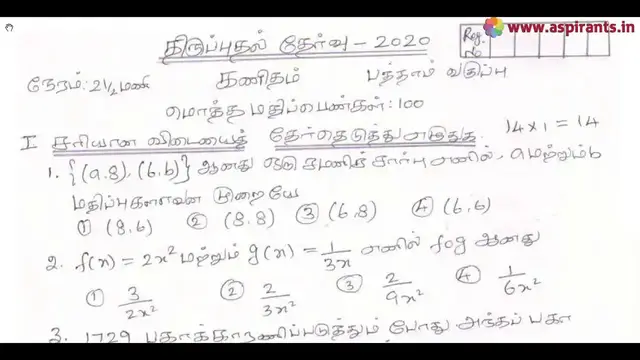 www.aspirants.in
திருப்புதல் தேர்வு - 2020
Reg. No
நேரம்: 2 1/2 மணி கணிதம் பத்தாம் வகுப்பு
மொத்த மதிப்பெண்கள்: 100
I சரியான விடையைத் தேர்ந்தெடுத்து எழுதுக. 14 x 1 = 14
1. {(a,8), (6,b)} ஆனது ஒரு சமனிச் சார்பு எனில், a மற்றும் b
மதிப்புகளாவன முறையே
① (8,6) ② (8,8) ③ (6,8) ④ (6,6)
2. f(x) = 2x² மற்றும் g(x) = 1/3x எனில் fog ஆனது
① 3/2x² ② 2/3x² ③ 2/9x² ④ 1/6x²
3. 1729 பகாக்காரணிப்படுத்தும் போது அந்தப் பகா